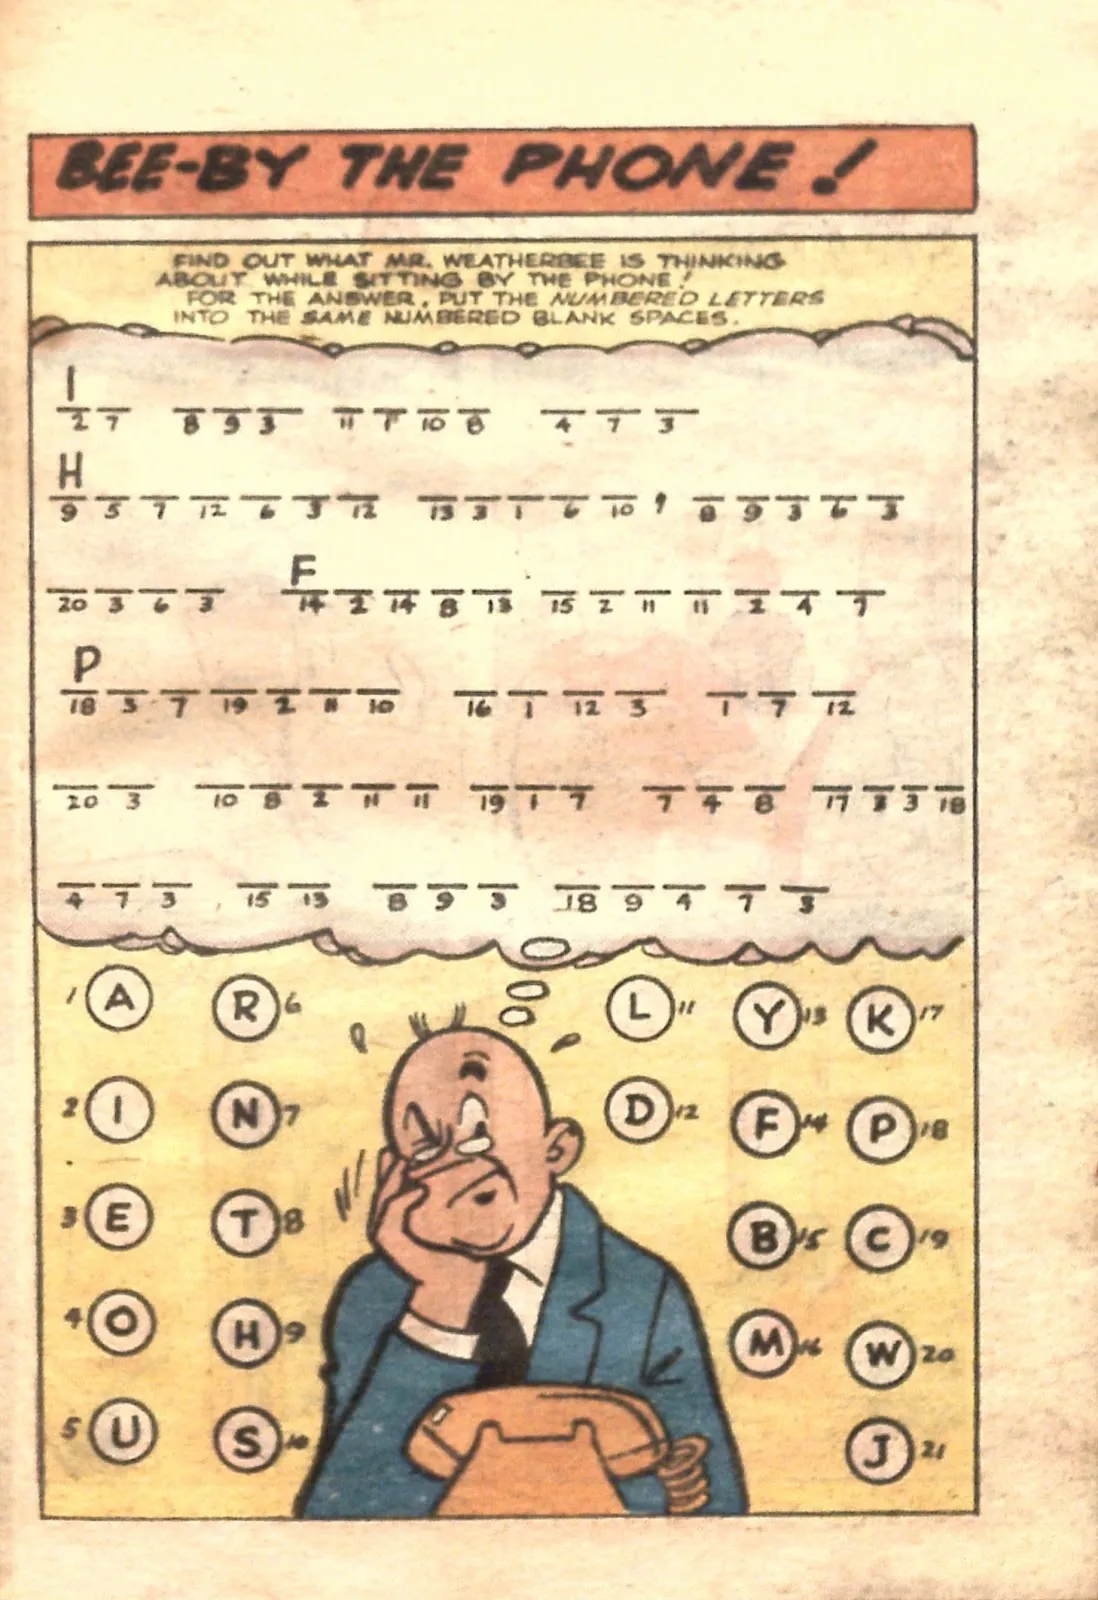 BEE-BY THE PHONE!
FIND OUT WHAT MR. WEATHERBEE IS THINKING
ABOUT WHILE SITTING BY THE PHONE!
FOR THE ANSWER, PUT THE NUMBERED LETTERS
INTO THE SAME NUMBERED BLANK SPACES.
I
2 7 8 9 3 11 1 10 8 4 7 3
H
9 5 7 12 6 3 12 13 3 1 6 10 , 8 9 3 6 3
F
20 3 6 3 14 2 14 8 13 15 2 11 11 2 4 7
P
18 3 7 19 2 11 10 16 1 12 3 1 7 12
20 3 10 8 2 11 11 19 1 7 7 4 8 17 3 3 18
4 7 3 15 13 8 9 3 18 9 4 7 3
1 A R 6 L 11 Y 13 K 17
2 I N 7 D 12 F 14 P 18
3 E T 8 B 15 C 19
4 O H 9 M 16 W 20
5 U S 10 J 21